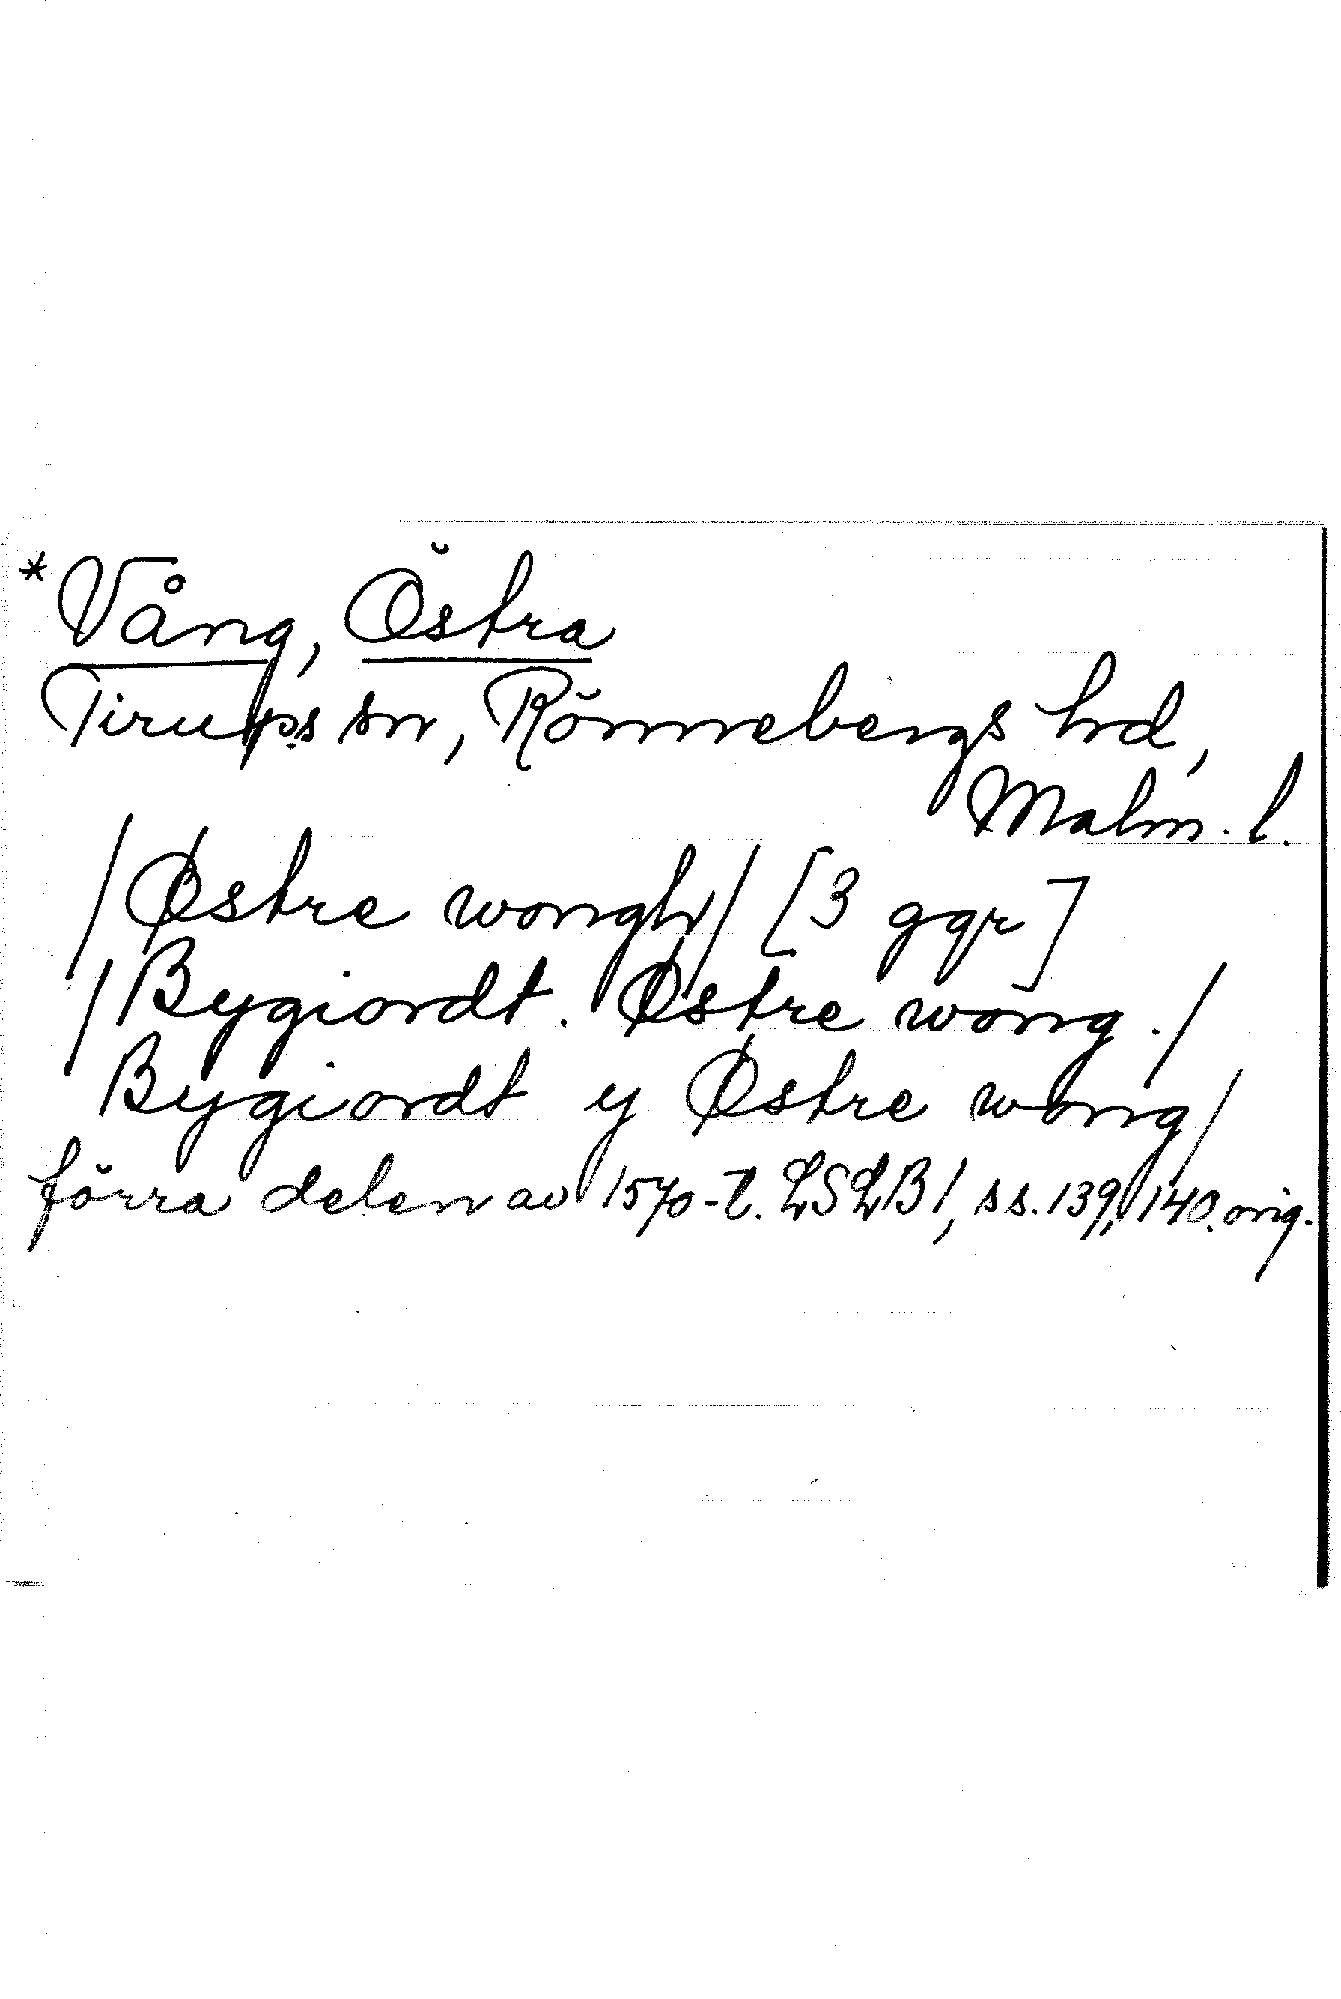 *Vång, Östra
Tirups sn, Rönnebergs hd,
Malm. l.
/Østre wongh/ [3 ggr]
/Bygiordt. Østre wong./
Bygiordt y Østre wong/
förra delen av 1570-t. LSLB1, ss. 139, 140. orig.